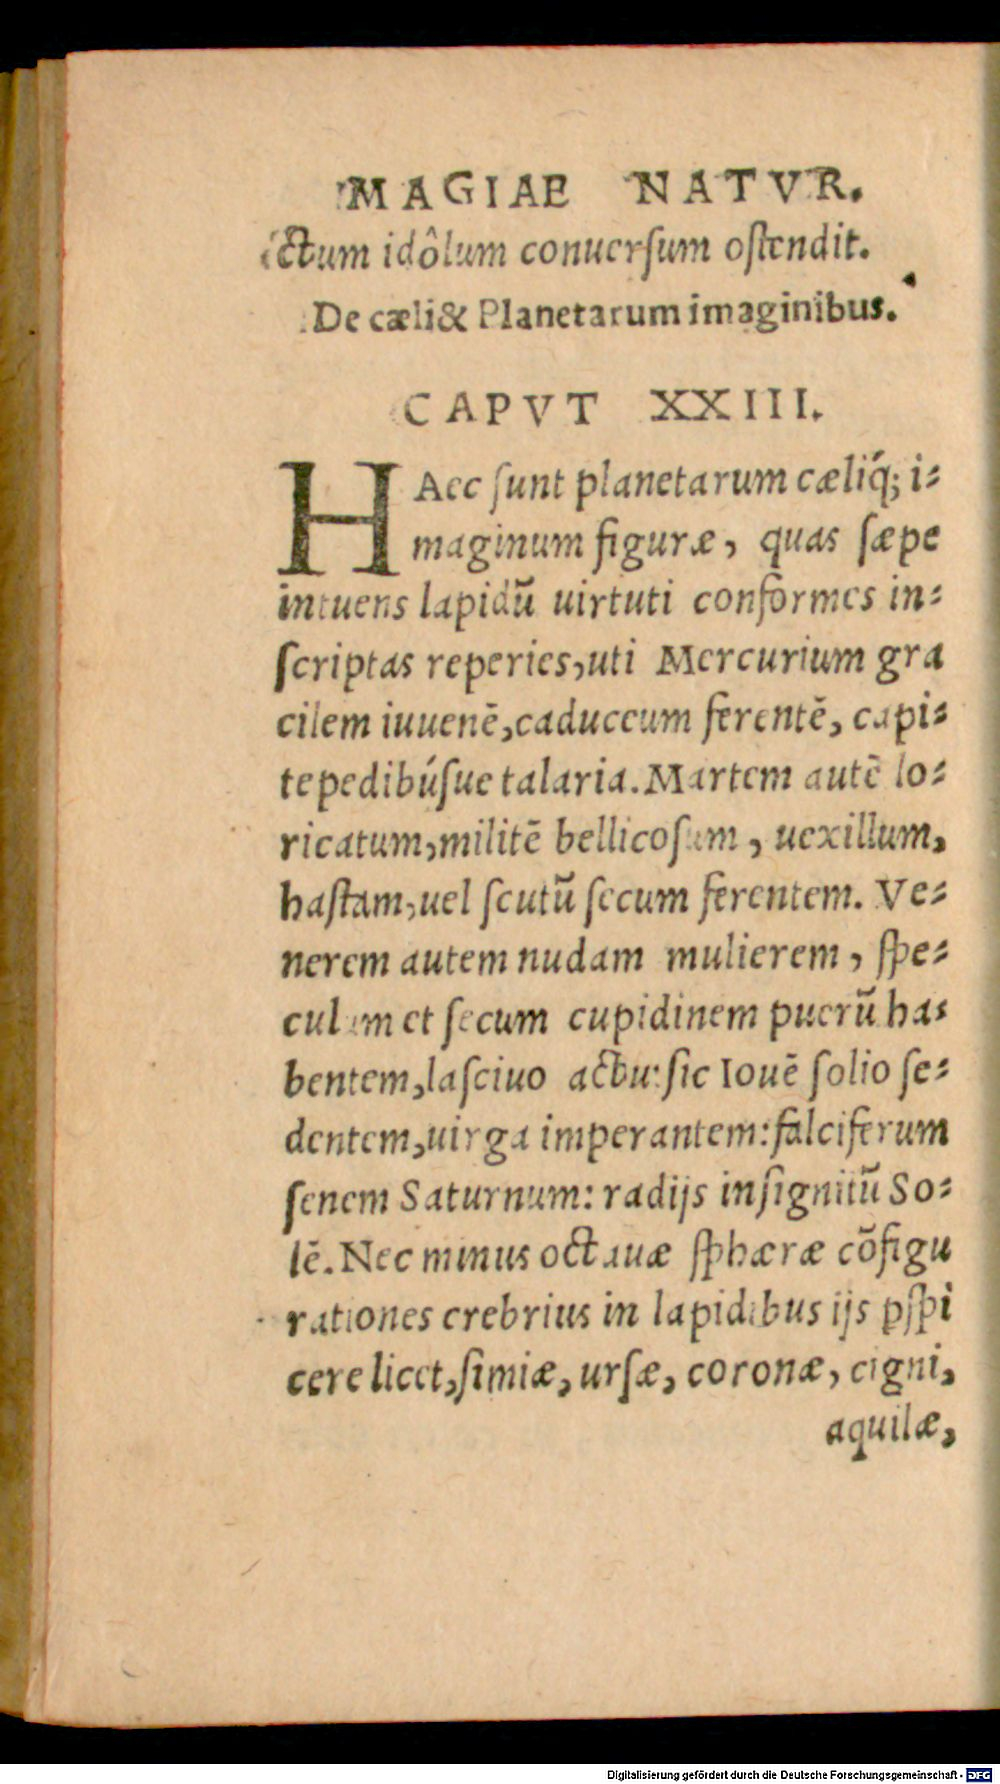 MAGIAE NATVR.
ictum idôlum conuersum ostendit.
De cæli & Planetarum imaginibus.
CAPVT XXIII.
HAec sunt planetarum cæliq́; i-
maginum figuræ, quas sæpe
intuens lapidū uirtuti conformes in-
scriptas reperies, uti Mercurium gra
cilem iuuenē, caduceum ferentē, capi-
te pedibúsue talaria. Martem autē lo-
ricatum, militē bellicosum, uexillum,
hastam, uel scutū secum ferentem. Ve-
nerem autem nudam mulierem, spe-
culum et secum cupidinem puerū ha-
bentem, lasciuo actu: sic Iouē solio se-
dentem, uirga imperantem: falciferum
senem Saturnum: radijs insignitū So-
lē. Nec minus octauæ sphæræ cōfigu
rationes crebrius in lapidibus ijs pspi
cere licet, simiæ, ursæ, coronæ, cigni,
aquilæ,
Digitalisierung gefördert durch die Deutsche Forschungsgemeinschaft - DFG